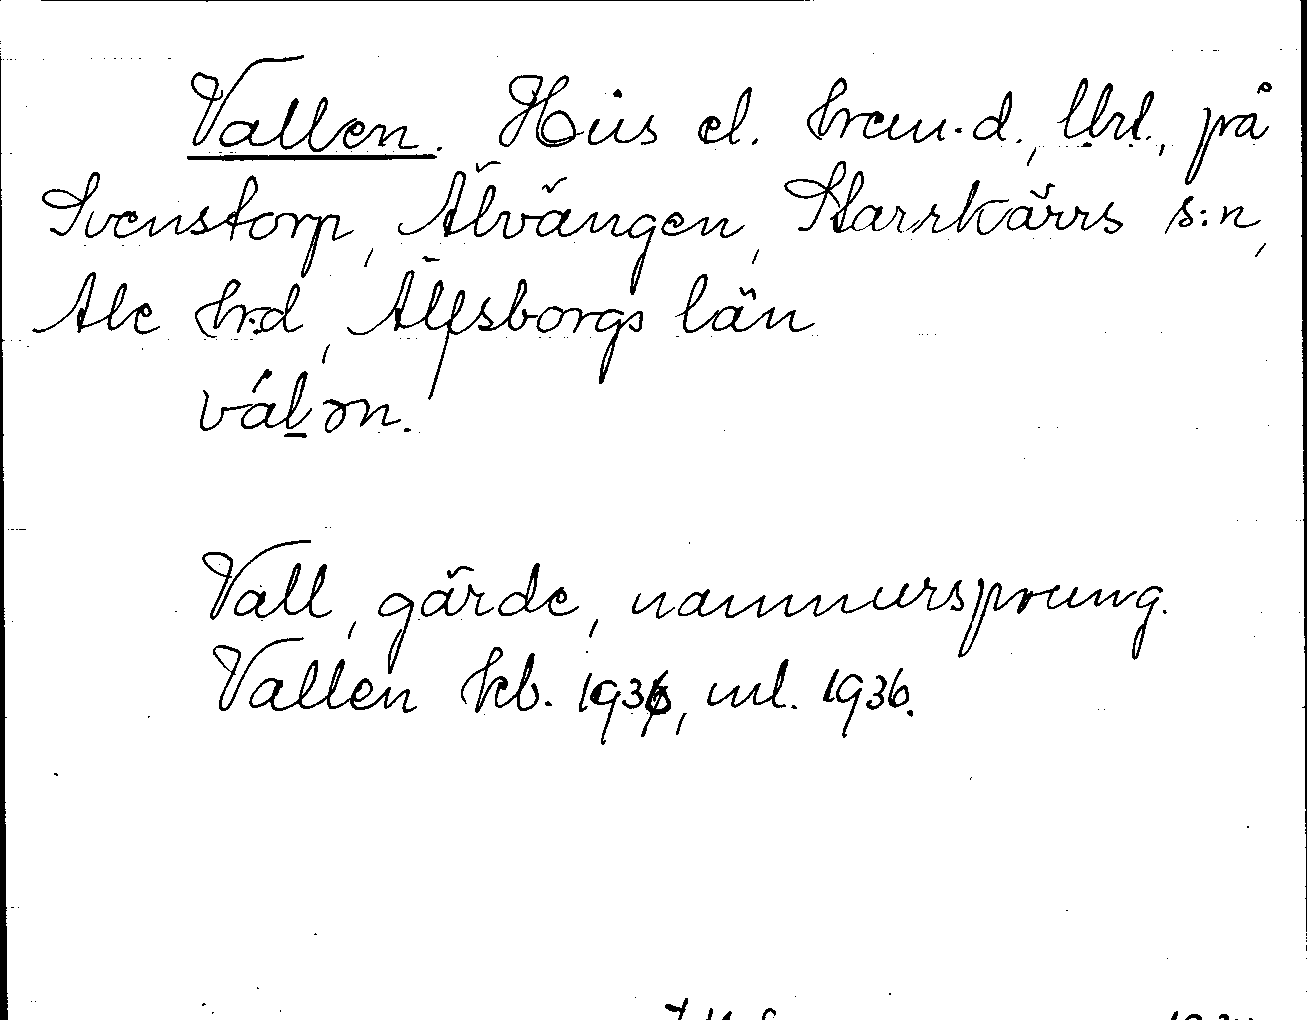 Vallen. Hus el. hem.d., lht., på
Svenstorp, Älvängen, Starrkärrs s:n,
Ale h:d, Älfsborgs län
válən.
Vall, gärde, namnursprung.
Vallen kb. 1936, ml. 1936.